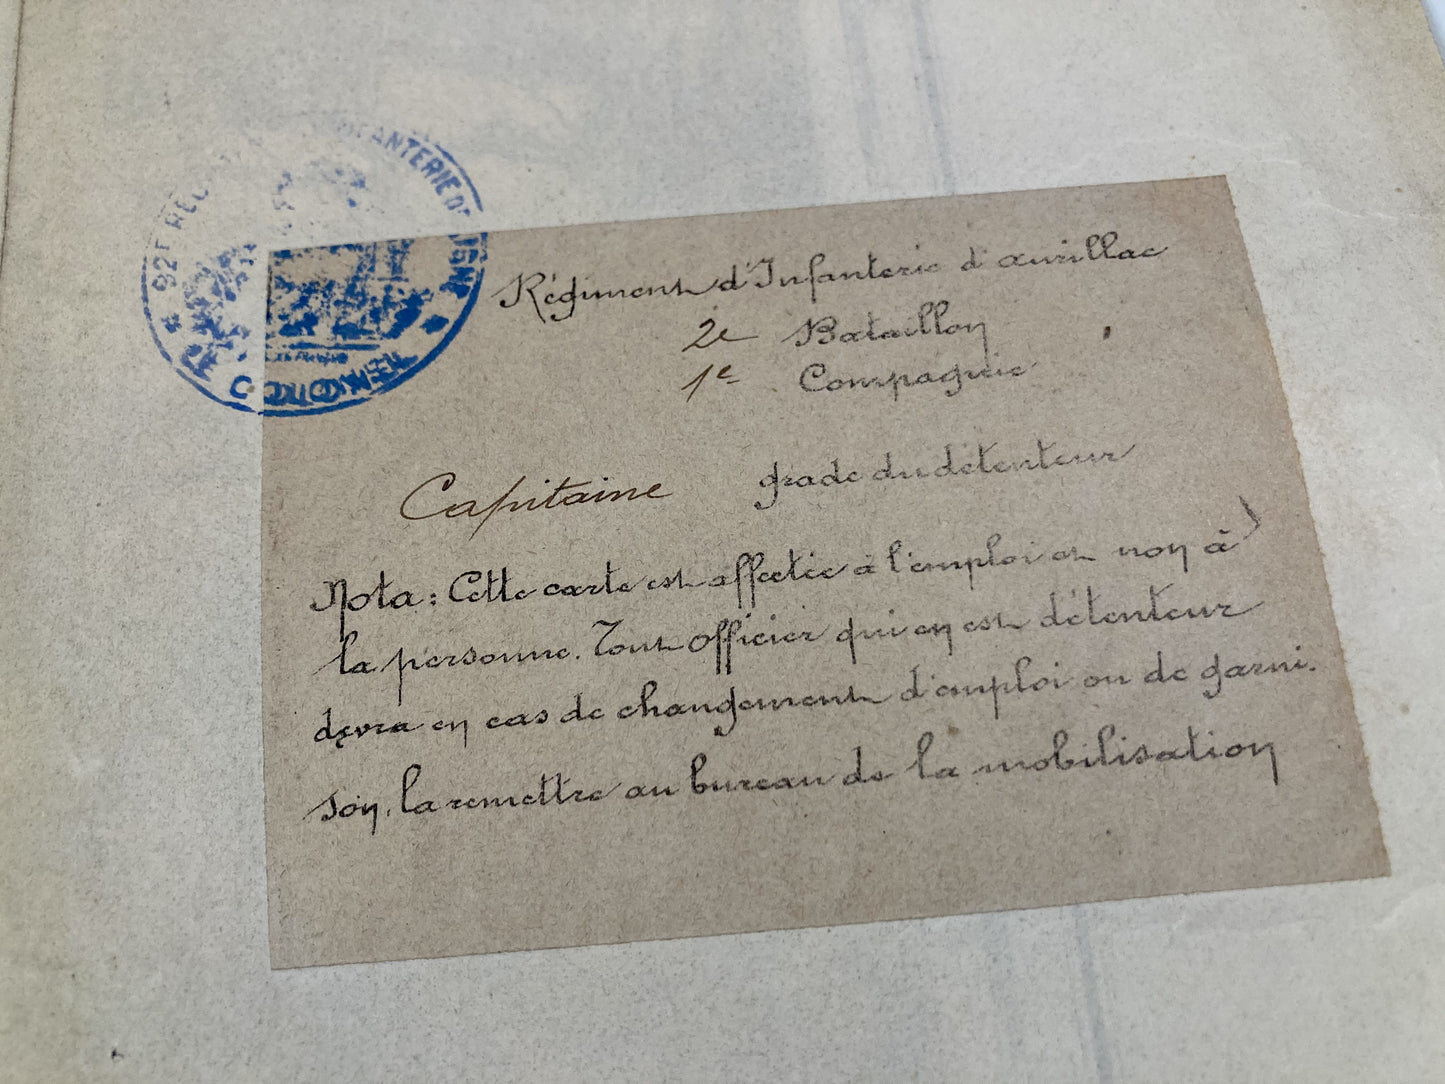 92E INFANTERIE DE LIGNE
Régiment d'Infanterie d'aurillac
2e Bataillon
1e Compagnie
Capitaine grade du détenteur
Nota : Cette carte est affectée à l'emploi et non à
la personne. Tout officier qui en est détenteur
devra en cas de changement d'emploi ou de garni.
son, la remettre au bureau de la mobilisation